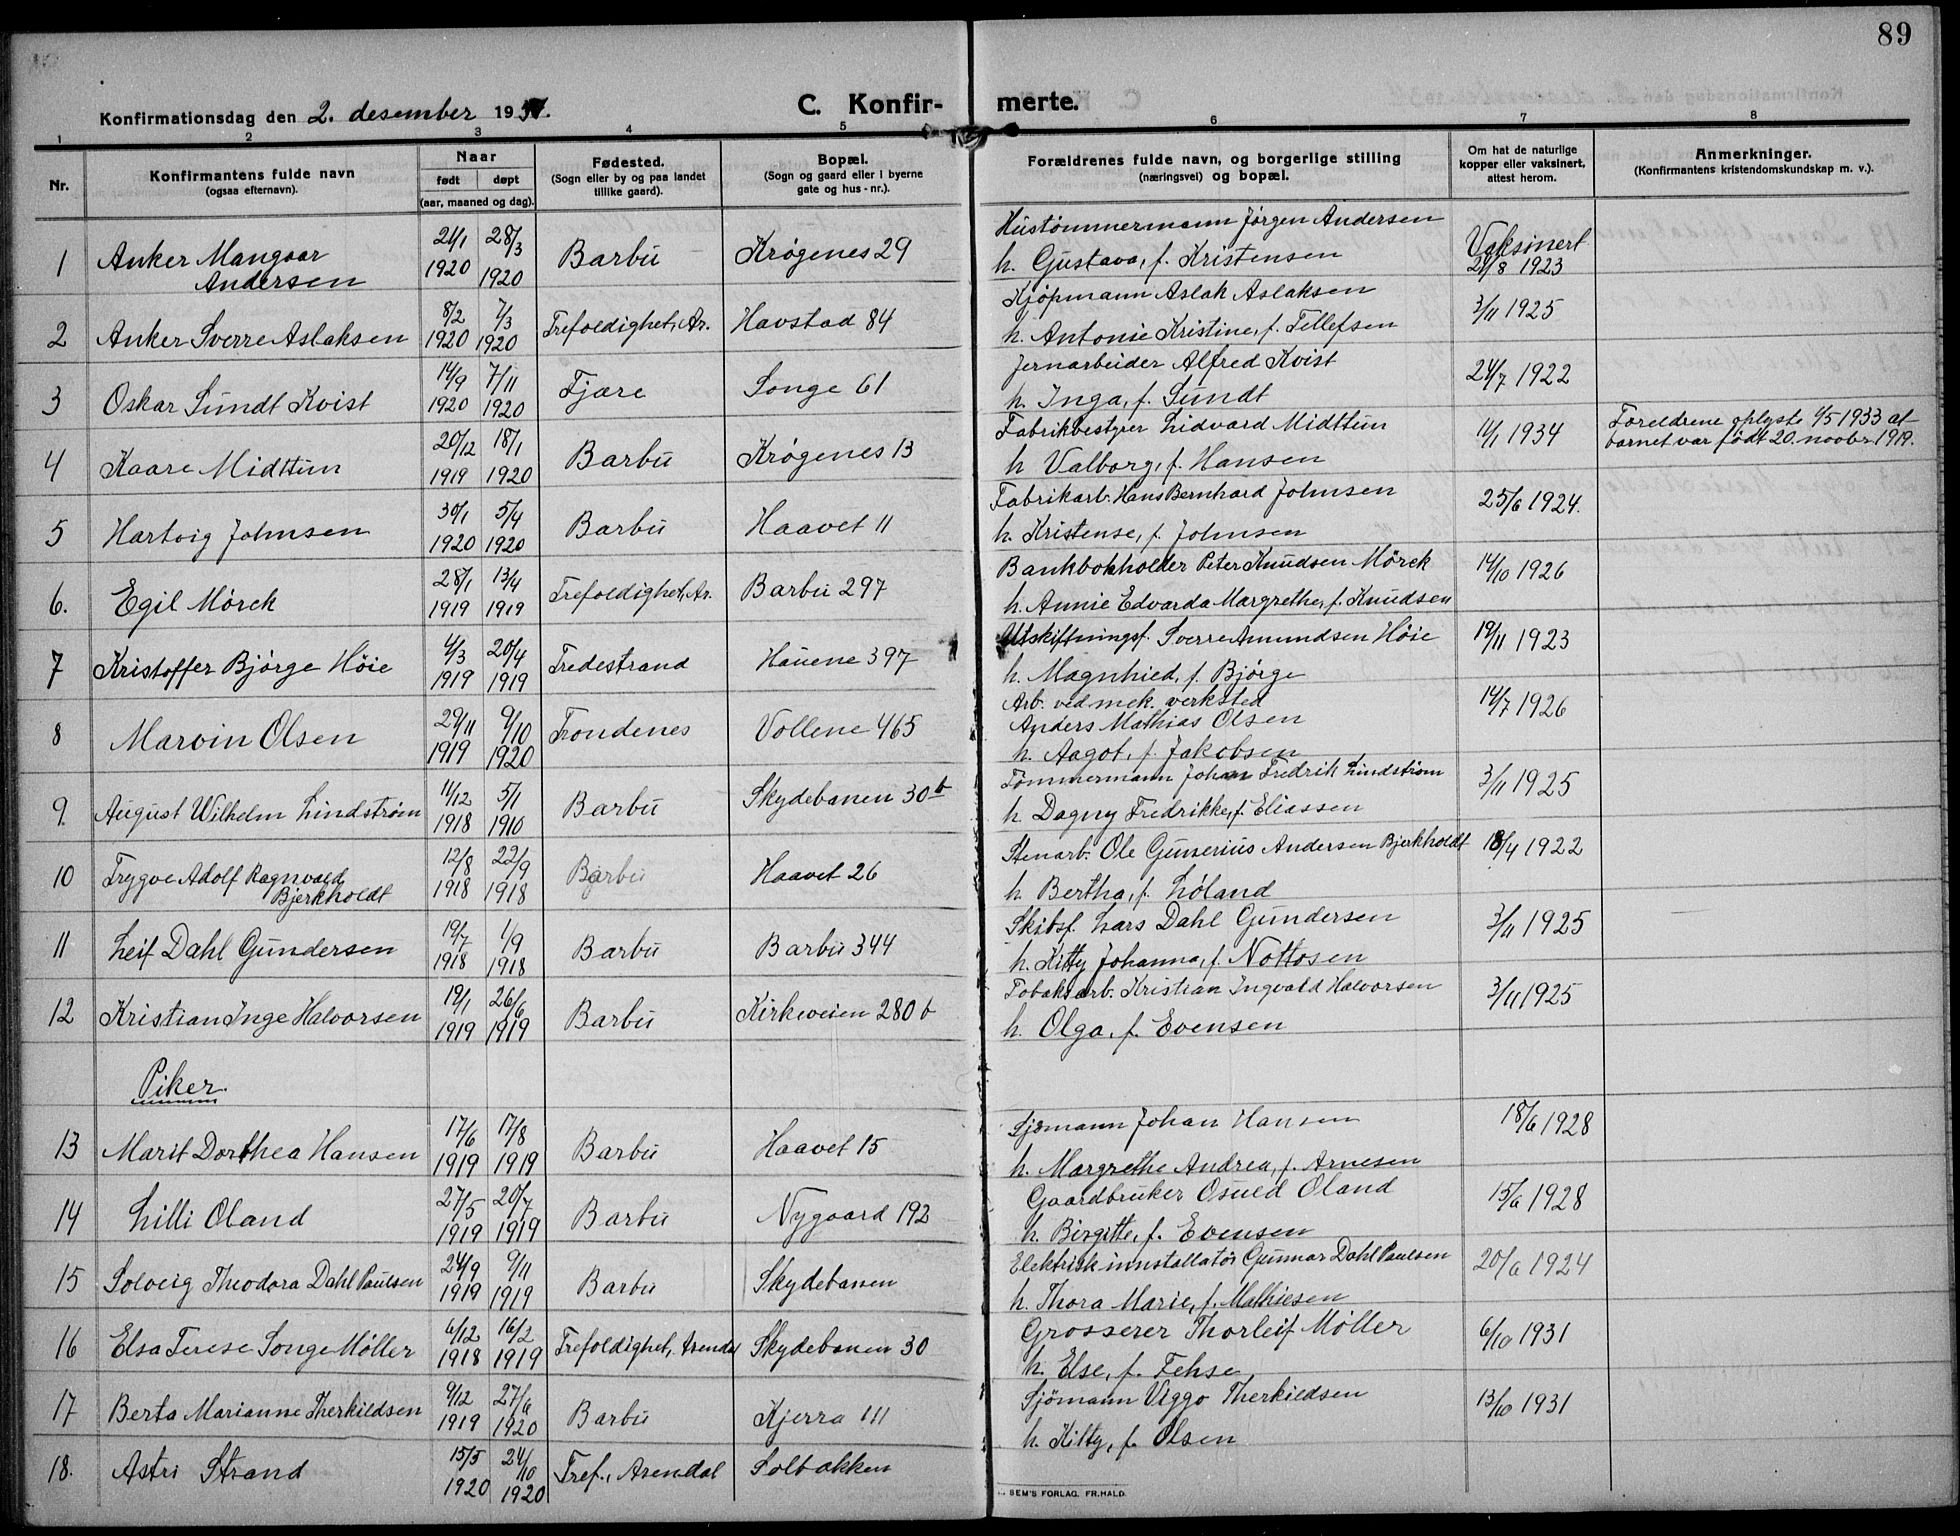 89
Konfirmationsdag den 2. desember 193
C. Konfirmerte.
1 2 3 4 5 6 7 8
Nr.
Konfirmantens fulde navn
(ogsaa efternavn).
Naar
født døpt
(aar, maaned og dag).
Fødested.
(Sogn eller by og paa landet
tillike gaard).
Bopæl.
(Sogn og gaard eller i byerne
gate og hus-nr.).
Forældrenes fulde navn, og borgerlige stilling
(næringsvei) og bopæl.
Om hat de naturlige
kopper eller vaksinert,
attest herom.
Anmerkninger.
(Konfirmantens kristendomskundskap m. v.).
1 Anker Mangvar Andersen 24/1 1920 28/3 1920 Barbu Krøgenes 29 Hustømmermann Jørgen Andersen
h. Gustava, f. Kristensen Vaksinert 21/8 1923
2 Anker Sverre Aslaksen 8/2 1920 7/3 1920 Trefoldighet, Ar. Havstad 84 Kjøpmann Aslak Aslaksen
h. Antonie Kristine, f. Tellefsen 3/11 1925
3 Oskar Sundt Kvist 14/9 1920 7/11 1920 Fjære Songe 61 Jernarbeider Alfred Kvist
h. Inga, f. Sundt 24/7 1922
4 Kaare Midttun 20/12 1919 18/1 1920 Barbu Krøgenes 13 Fabrikbestyrer Lidvard Midttun
h Valborg, f. Hansen 11/1 1934 Foreldrene oplyste 1/5 1933 at
barnet var født 20. novbr 1919.
5 Hartvig Johnsen 30/1 1920 5/4 1920 Barbu Haavet 11 Fabrikarb. Hans Bernhard Johnsen
h. Kristense, f. Johnsen 25/6 1924.
6. Egil Mörck 28/1 1919 13/4 1919 Trefoldighet, Ar. Barbu 297 Bankbokholder Peter Knudsen Mörck
h. Annie Edvarda Margrethe, f. Knudsen 14/10 1926
7 Kristoffer Bjørge Höie 4/3 1919 20/4 1919 Tvedestrand Hauene 397 Utskiftningsf. Sverre Amundsen Höie
h. Magnhied, f. Bjørge 19/11 1923
8 Marvin Olsen 29/11 1919 9/10 1920 Trondenes Vollene 465 Arb. ved mek. verksted
Anders Mathias Olsen
h. Aagot, f. Jakobsen 14/7 1926
9. August Wilhelm Lindstrøm 11/12 1918 5/1 1910 Barbu Skydebanen 30 b Tømmermann Johan Fredrik Lindstrøm
h Dagny Fredrikke, f. Eliassen 3/11 1925
10 Trygve Adolf Ragnvald Bjerkholdt 12/8 1918 22/9 1918 Barbu Haavet 26 Stenarb. Ole Gunerius Andersen Bjerkholdt
h. Bertha, f. Løland 18/4 1922
11 Leif Dahl Gundersen 19/7 1918 1/9 1918 Barbu Barbu 344 Skibsf. Lars Dahl Gundersen
h. Kitty Johanna, f. Nottosen 3/11 1925
12 Kristian Inge Halvorsen 19/1 1919 26/6 1919 Barbu Kirkeveien 280 b Tobaksarb. Kristian Ingvald Halvorsen
h. Olga, f. Evensen 3/11 1925
Piker.
13 Marit Dorthea Hansen 17/6 1919 17/8 1919 Barbu Haavet 15 Sjømann Johan Hansen
h. Margrethe Andrea, f. Arnesen 18/6 1928
14 Lilli Oland 27/5 1919 20/7 1919 Barbu Nygaard 192 Gaardbruker Osuld Oland
h. Birgitte, f. Evensen 15/6 1928
15 Solveig Theodora Dahl Paulsen 24/9 1919 9/11 1919 Barbu Skydebanen Elektrisk innstallatör Gunnar Dahl Paulsen
h. Thora Marie, f. Mathiesen 20/6 1924
16 Elsa Terese Songe Møller 6/12 1918 16/2 1919 Trefoldighet, Arendal Skydebanen 30 Grosserer Thorleif Møller
h. Else, f. Fehse 6/10 1931
17 Berta Marianne Therkildsen 9/12 1919 27/6 1920 Barbu Kjerra 111 Sjömann Viggo Therkildsen
h. Kitty, f. Olsen 13/10 1931
18. Astri Strand 15/5 1920 24/10 1920 Tref., Arendal Solbakken
SEM'S FORLAG. FR.HALD.